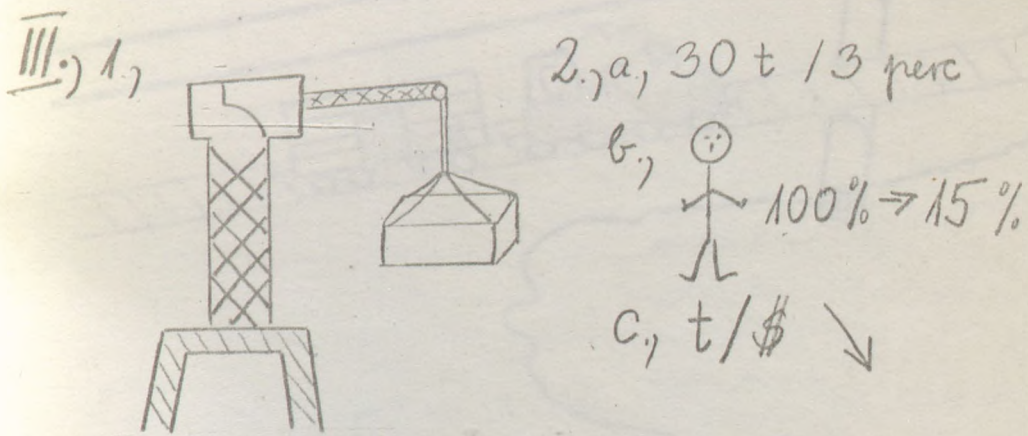 III., 1.,
2., a., 30 t / 3 perc
b.,
100% → 15%
c., t/$ ↘